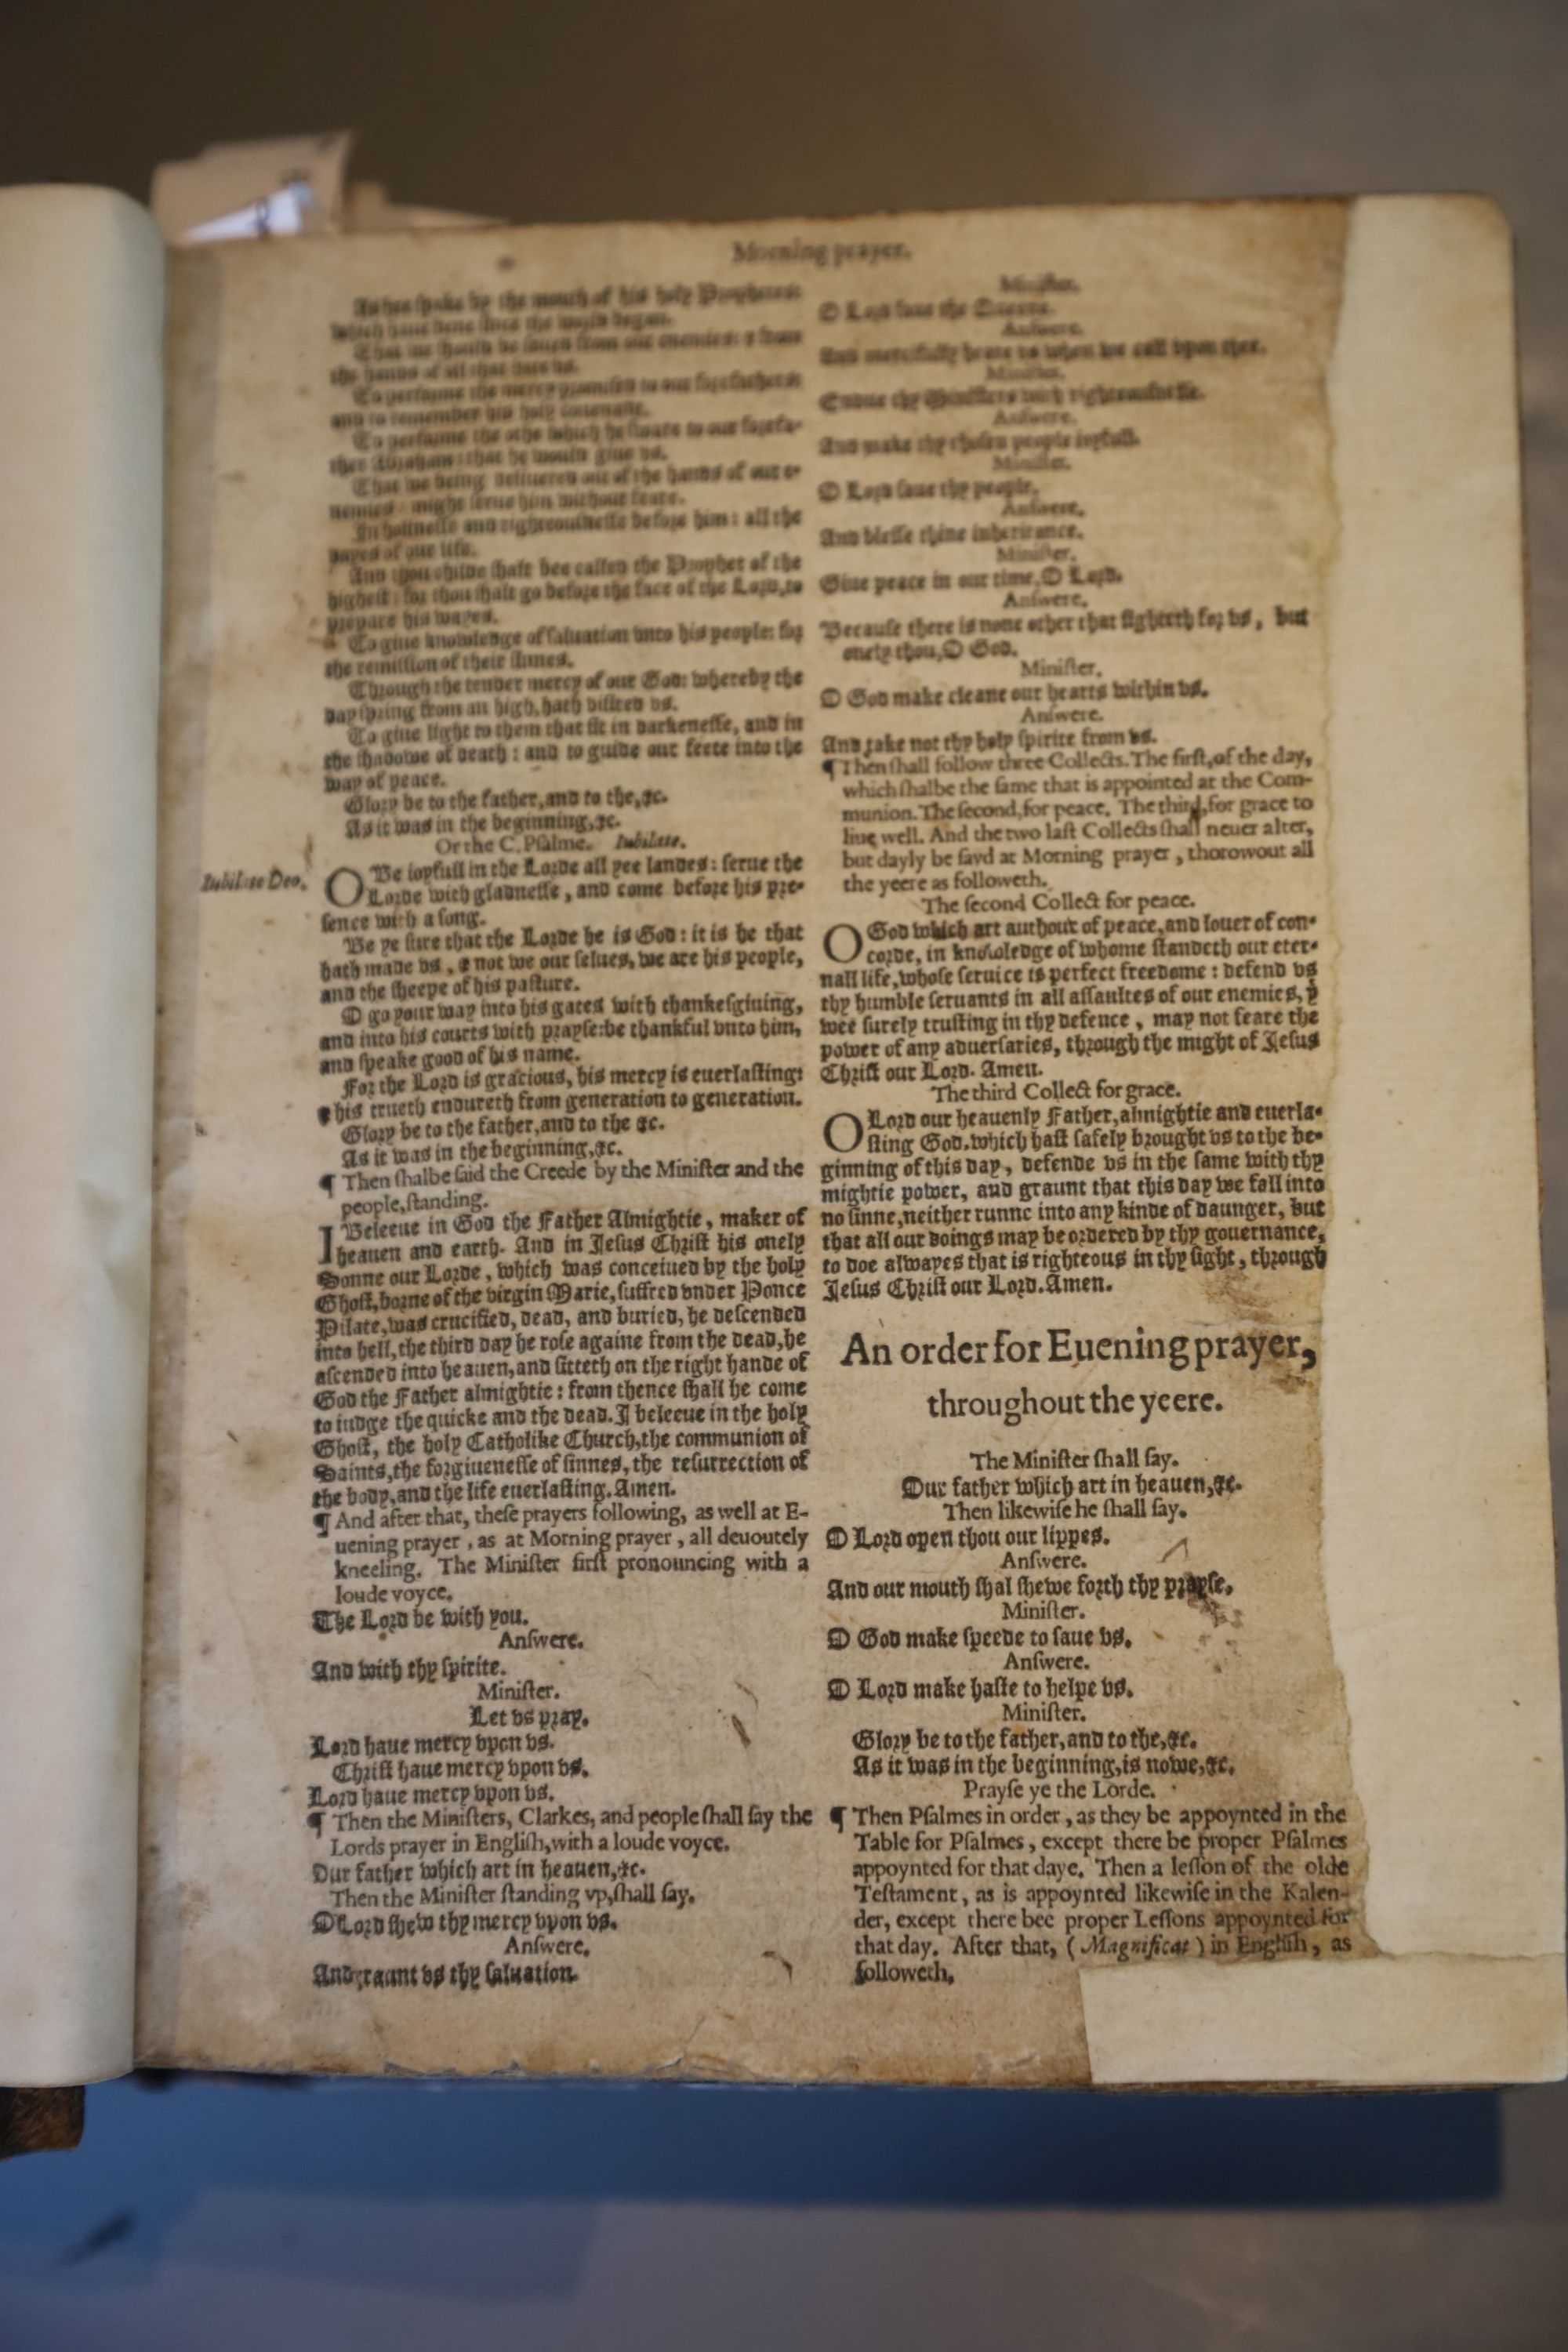 Morning prayer.
As hee spake by the mouth of his holy Prophetes:
which haue bene since the world began.
That we should be saued from our enemies: & from
the hands of all that hate vs.
To perfourme the mercy promised to our forefathers:
and to remember his holy couenant.
To perfourme the othe which he sware to our forefa-
ther Abraham: that he would giue vs.
That we being deliuered out of the hands of our e-
nemies might serue him without feare.
In holinesse and righteousnesse before him: all the
dayes of our life.
And thou childe shalt bee called the Prophet of the
highest: for thou shalt go before the face of the Lord, to
prepare his wayes.
To giue knowledge of saluation vnto his people: for
the remission of their sinnes.
Through the tender mercy of our God: whereby the
day spring from an high, hath visited vs.
To giue light to them that sit in darkenesse, and in
the shadowe of death: and to guide our feete into the
way of peace.
Glory be to the father, and to the, &c.
As it was in the beginning, &c.
Or the C. Psalme. Iubilate.
Iubilate Deo.
O Be ioyfull in the Lorde all yee landes: serue the
Lorde with gladnesse, and come before his pre-
sence with a song.
Be ye sure that the Lorde he is God: it is he that
hath made vs, & not we our selues, we are his people,
and the sheepe of his pasture.
O go your way into his gates with thankesgiuing,
and into his courts with prayse: be thankful vnto him,
and speake good of his name.
For the Lord is gracious, his mercy is euerlasting:
& his trueth endureth from generation to generation.
Glory be to the father, and to the &c.
As it was in the beginning, &c.
¶ Then shalbe said the Creede by the Minister and the
people, standing.
I Beleeue in God the Father Almightie, maker of
heauen and earth. And in Jesus Christ his onely
Sonne our Lorde, which was conceiued by the holy
Ghost, borne of the virgin Marie, suffred vnder Ponce
Pilate, was crucified, dead, and buried, he descended
into hell, the third day he rose againe from the dead, he
ascended into heauen, and sitteth on the right hande of
God the Father almightie: from thence shall he come
to iudge the quicke and the dead. I beleeue in the holy
Ghost, the holy Catholike Church, the communion of
Saints, the forgiuenesse of sinnes, the resurrection of
the body, and the life euerlasting. Amen.
¶ And after that, these prayers following, as well at E-
uening prayer, as at Morning prayer, all deuoutely
kneeling. The Minister first pronouncing with a
loude voyce.
The Lord be with you.
Answere.
And with thy spirite.
Minister.
Let vs pray.
Lord haue mercy vpon vs.
Christ haue mercy vpon vs.
Lord haue mercy vpon vs.
¶ Then the Ministers, Clarkes, and people shall say the
Lords prayer in English, with a loude voyce.
Our father which art in heauen, &c.
Then the Minister standing vp, shall say.
O Lord shew thy mercy vpon vs.
Answere.
And graunt vs thy saluation.
Minister.
O Lord saue the Queene.
Answere.
And mercifully heare vs when we call vpon thee.
Minister.
Endue thy Ministers with righteousnesse.
Answere.
And make thy chosen people ioyfull.
Minister.
O Lord saue thy people.
Answere.
And blesse thine inheritance.
Minister.
Giue peace in our time, O Lord.
Answere.
Because there is none other that fighteth for vs, but
onely thou, O God.
Minister.
O God make cleane our hearts within vs.
Answere.
And take not thy holy spirite from vs.
¶ Then shall follow three Collects. The first, of the day,
which shalbe the same that is appointed at the Com-
munion. The second, for peace. The third, for grace to
liue well. And the two last Collects shall neuer alter,
but dayly be sayd at Morning prayer, thorowout all
the yeere as followeth.
The second Collect for peace.
O God which art authour of peace, and louer of con-
corde, in knowledge of whome standeth our eter-
nall life, whose seruice is perfect freedome: defend vs
thy humble seruants in all assaultes of our enemies, yͭ
wee surely trusting in thy defence, may not feare the
power of any aduersaries, through the might of Jesus
Christ our Lord. Amen.
The third Collect for grace.
O Lord our heauenly Father, almightie and euerla-
sting God, which hast safely brought vs to the be-
ginning of this day, defende vs in the same with thy
mightie power, and graunt that this day we fall into
no sinne, neither runne into any kinde of daunger, but
that all our doings may be ordered by thy gouernance,
to doe alwayes that is righteous in thy sight, through
Jesus Christ our Lord. Amen.
An order for Euening prayer,
throughout the yeere.
The Minister shall say.
Our father which art in heauen, &c.
Then likewise he shall say.
O Lord open thou our lippes.
Answere.
And our mouth shal shewe forth thy prayse.
Minister.
O God make speede to saue vs.
Answere.
O Lord make haste to helpe vs.
Minister.
Glory be to the father, and to the, &c.
As it was in the beginning, is nowe, &c.
Prayse ye the Lorde.
¶ Then Psalmes in order, as they be appoynted in the
Table for Psalmes, except there be proper Psalmes
appoynted for that daye. Then a lesson of the olde
Testament, as is appoynted likewise in the Kalen-
der, except there bee proper Lessons appoynted for
that day. After that, (Magnificat) in English, as
followeth.